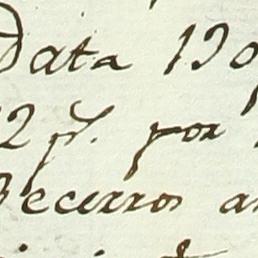 Data 130
2 ps. por
Becerros a